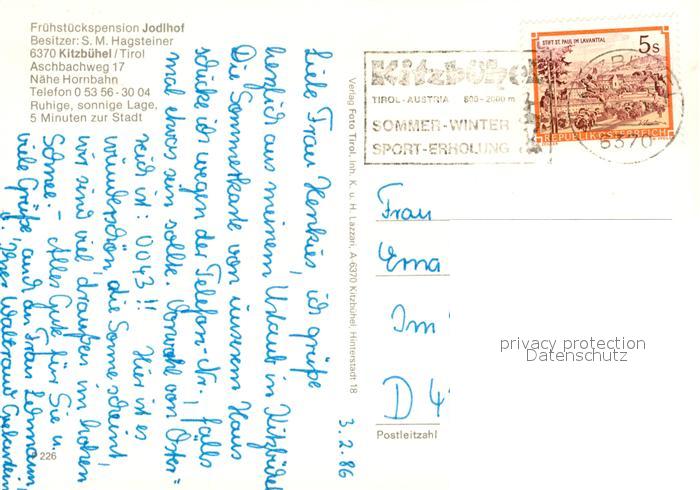 Frühstückspension Jodlhof
Besitzer: S. M. Hagsteiner
6370 Kitzbühel/Tirol
Aschbachweg 17
Nähe Hornbahn
Telefon 0 53 56 - 30 04
Ruhige, sonnige Lage,
5 Minuten zur Stadt
Liebe Frau Henkies, ich grüße
herzlich aus meinem Urlaub in Kitzbühel
Die Sommerkarte von unserem Haus
schicke ich wegen der Telefon-Nr., falls
mal etwas sein sollte. Vorwahl von Öster=
reich ist: 0043!! Hier ist es
wunderschön, die Sonne scheint,
wir sind viel draußen im hohen
Schnee. - Alles Gute für Sie u.
viele Grüße, auch an Frau Lehmann,
Ihre Waltraud
3.2.86
226
Verlag Foto Tirol, Inh. K. u. H. Lazzari, A-6370 Kitzbühel, Hinterstadt 18
Kitzbühel
TIROL-AUSTRIA 800-2000 m
SOMMER-WINTER
SPORT-ERHOLUNG
STIFT ST. PAUL IM LAVANTTAL
5s
REPUBLIK ÖSTERREICH
6370
Frau
Erna
Im
D 4
Postleitzahl
privacy protection
Datenschutz